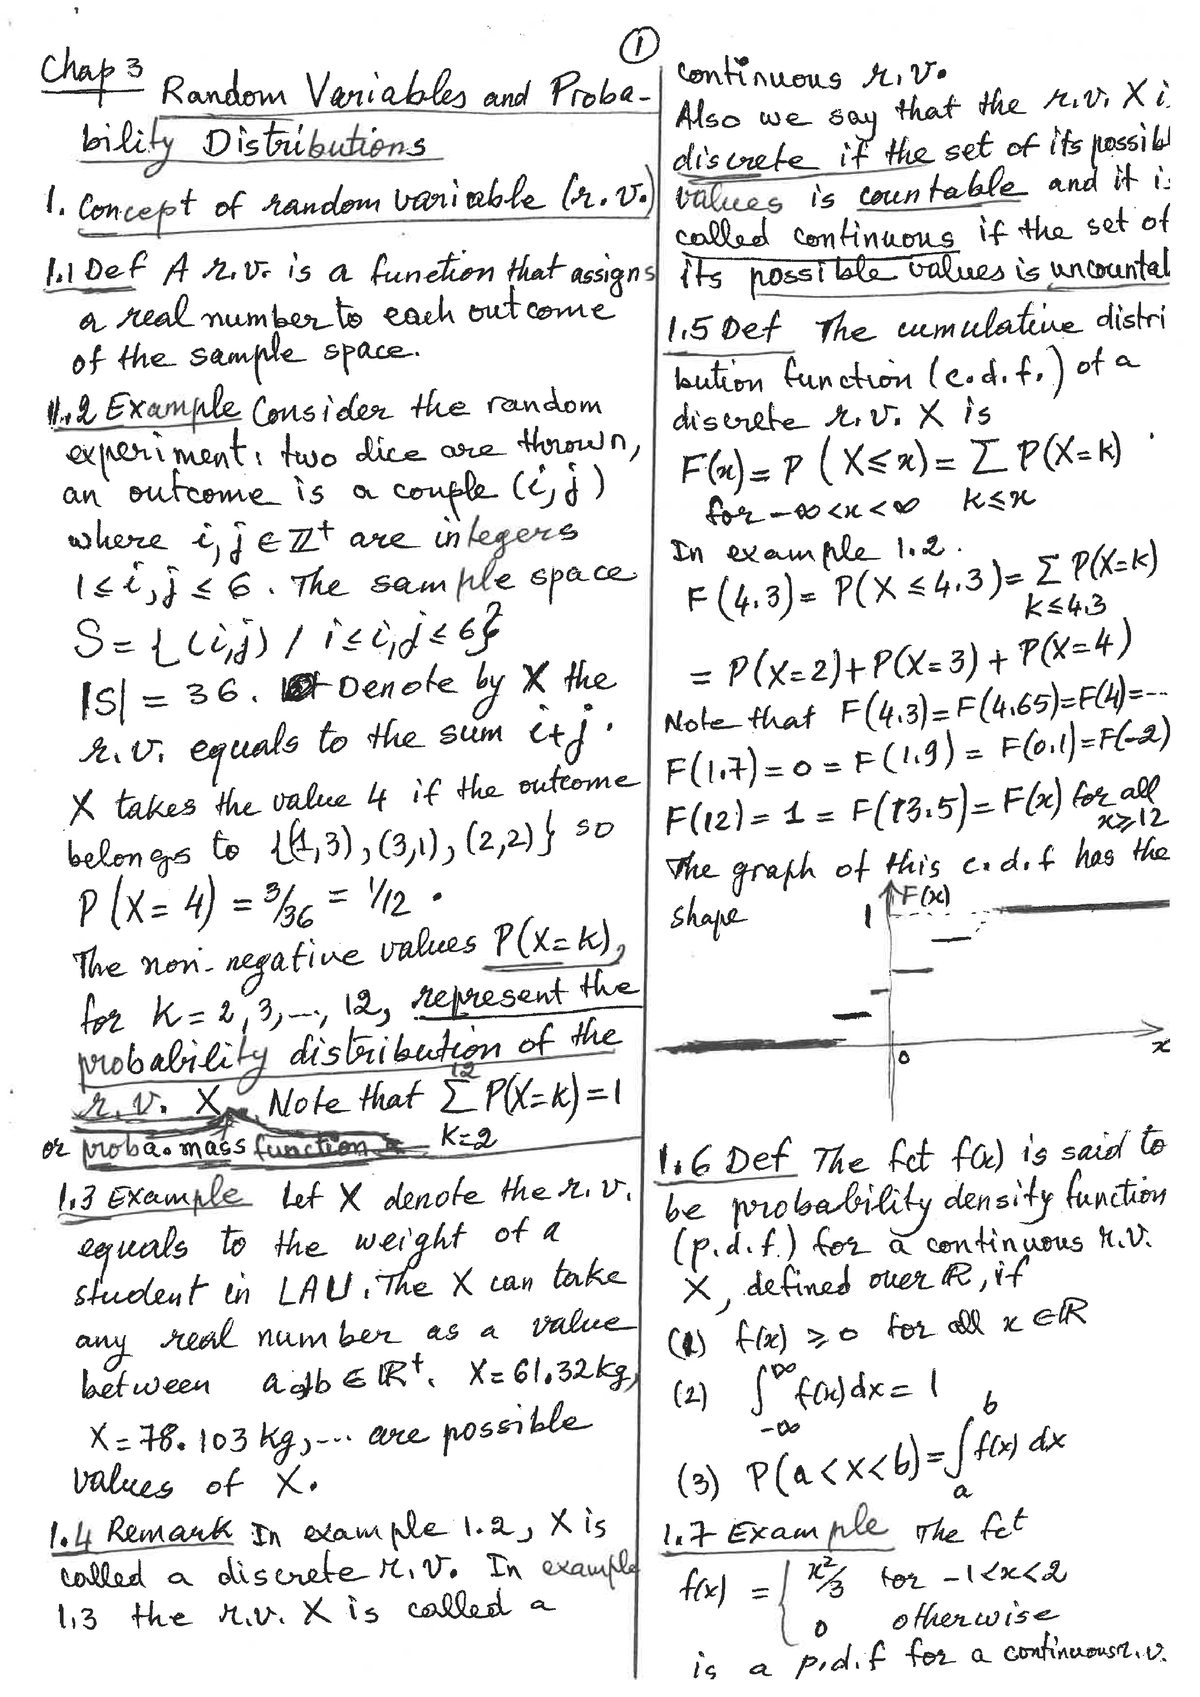 ①
Chap 3
Random Variables and Proba-
bility Distributions
1. Concept of random variable (r.v.)
1.1 Def A r.v. is a function that assigns
a real number to each outcome
of the sample space.
1.2 Example Consider the random
experiment: two dice are thrown,
an outcome is a couple (i,j)
where i, j ∈ ℤ⁺ are integers
1≤i,j≤6. The sample space
S={(i,j) / 1≤i,j≤6}
|S| = 36. Denote by X the
r.v. equals to the sum i+j.
X takes the value 4 if the outcome
belongs to {(1,3),(3,1),(2,2)} so
P(X=4) = 3/36 = 1/12.
The non-negative values P(X=k),
for k=2,3,---,12, represent the
probability distribution of the
r.v. X. Note that ∑_{k=2}^{12} P(X=k)=1
or proba. mass function
1.3 Example Let X denote the r.v.
equals to the weight of a
student in LAU. The X can take
any real number as a value
between a & b ∈ ℝ⁺. X=61.32kg,
X=78.103 kg,--- are possible
values of X.
1.4 Remark In example 1.2, X is
called a discrete r.v. In example
1.3 the r.v. X is called a
continuous r.v.
Also we say that the r.v. X i
discrete if the set of its possibl
values is countable and it i
called continuous if the set of
its possible values is uncountal
1.5 Def The cumulative distri
bution function (c.d.f.) of a
discrete r.v. X is
F(x)=P(X≤x)=∑_{k≤x} P(X=k)
for -∞<x<∞
In example 1.2.
F(4.3)=P(X≤4.3)=∑_{k≤4.3} P(X=k)
=P(X=2)+P(X=3)+P(X=4)
Note that F(4.3)=F(4.65)=F(4)=---
F(1.7)=0=F(1.9)=F(0.1)=F(-2)
F(12)=1=F(13.5)=F(x) for all
x≥12
The graph of this c.d.f has the
shape
F(x)
1
0
x
1.6 Def The fct f(x) is said to
be probability density function
(p.d.f.) for a continuous r.v.
X, defined over ℝ, if
(1) f(x) ≥ 0 for all x ∈ ℝ
(2) ∫_{-∞}^{∞} f(x)dx = 1
(3) P(a<X<b)=∫_{a}^{b} f(x) dx
1.7 Example The fct
f(x) = { x²/3 for -1<x<2
0 otherwise
is a p.d.f for a continuous r.v.